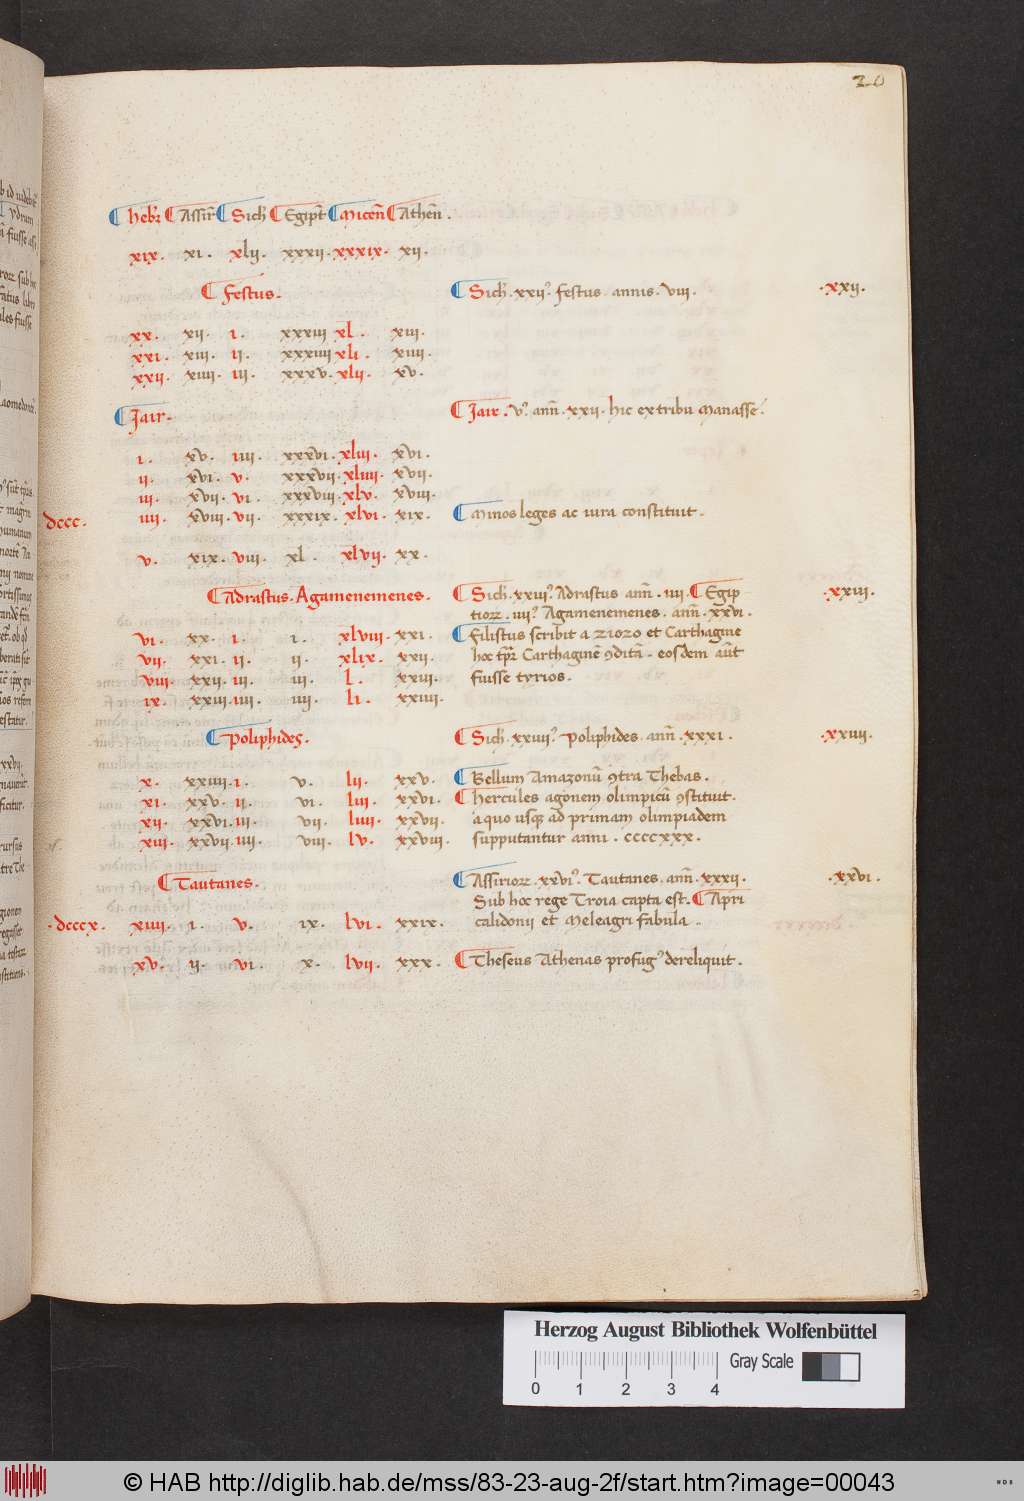 20
Hebr Assir Sich Egipt Micen Athen.
xix. xi. xlij. xxxij. xxxix. xij.
Festus. Sich. xxij⁹. festus. annis. viij. .xxij.
xx. xij. i. xxxiij xl. xiij.
xxi. xiij. ij. xxxiiij xli. xiiij.
xxij. xiiij. iij. xxxv. xlij. xv.
Jair. Jair. v⁹. ann̄. xxij. hic ex tribu Manasse.
i. xv. iiij. xxxvi. xliij. xvi.
ij. xvi. v. xxxvij. xliiij. xvij.
iij. xvij. vi. xxxviij. xlv. xviij.
dccc. iiij. xviij. vij. xxxix. xlvi. xix. Minos leges ac iura constituit.
v. xix. viij. xl. xlvij. xx.
Adrastus. Agamenemenes. Sich. xxiij⁹. Adrastus ann̄. iiij. Egip .xxiij.
tioꝝ. iiij⁹. Agamenemenes. ann̄. xxvi.
vi. xx. i. i. xlviij. xxi. Filistus scribit a ziozo et Carthagine
vij. xxi. ij. ij. xlix. xxij. hoc tp̄r Carthaginē ꝯditā. eosdem aūt
viij. xxij. iij. iij. l. xxiij. fuisse tyrios.
ix. xxiij. iiij. iiij. li. xxiiij.
Poliphides. Sich. xxiiij⁹. Poliphides. ann̄. xxxi. .xxiiij.
x. xxiiij. i. v. lij. xxv. Bellum Amazonū ꝯtra Thebas.
xi. xxv. ij. vi. liij. xxvi. Hercules agonem olimpicū ꝯstituit.
xij. xxvi. iij. vij. liiij. xxvij. a quo usqꝫ ad primam olimpiadem
xiij. xxvij. iiij. viij. lv. xxviij. supputantur anni. ccccxxx.
Tautanes. Assirioꝝ. xxvi⁹. Tautanes. ann̄. xxxij. .xxvi.
Sub hoc rege Troia capta est. Apri
.dcccx. xiiij. i. v. ix. lvi. xxix. calidonii et Meleagri fabula..
xv. ij. vi. x. lvij. xxx. Theseus Athenas profug⁹ dereliquit.
Herzog August Bibliothek Wolfenbüttel
Gray Scale
0 1 2 3 4
© HAB http://diglib.hab.de/mss/83-23-aug-2f/start.htm?image=00043